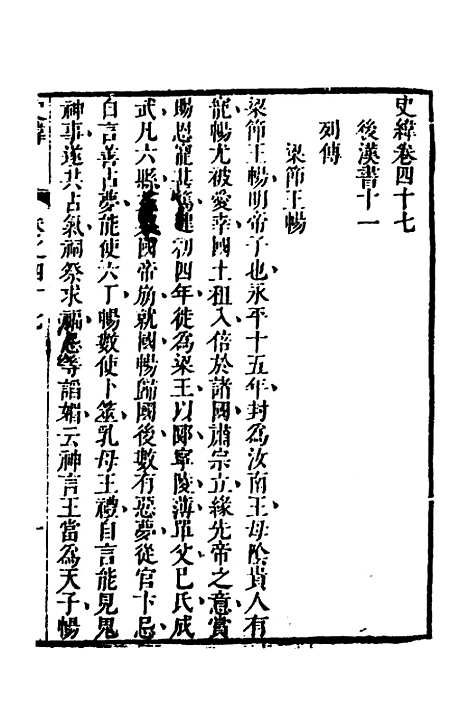 史緯卷四十七
後漢書十一
列傳
梁節王暢
梁節王暢明帝子也永平十五年封爲汝南王母陰貴人有
寵暢尤被愛幸國土租入倍於諸國肅宗立緣先帝之意賞
賜恩寵甚篤建初四年徙為梁王以郾寧陵薄單父巳氏成
武凡六縣益梁國帝崩就國暢歸國後數有惡夢從官卞忌
自言善占夢能使六丁暢數使卜筮乳母王禮自言能見鬼
神事遂共占氣祠祭求福忌等諂媚云神言王當為天子暢
史緯
卷之四十七
一